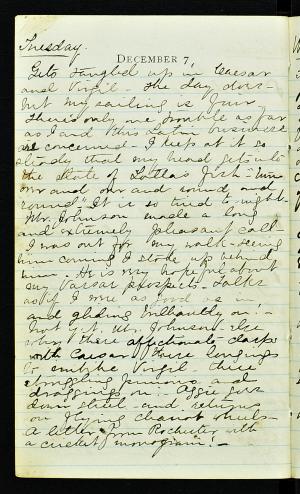 Tuesday.
DECEMBER 7,
Gets tangled up in Caesar
and Virgil - the day does -
but my sailing is fair
There's only one trouble as far
as I and this Latin business
are concerned - I keep at it so
steady that my head gets into
the state of fish -
over and over and round and
round." It is so tired to-night -
Mr. Johnson made a long
and extremely pleasant call -
I was out for my walk - seeing
him coming I stole up behind
him - He is very hopeful about
my Vassar prospects - Talks
as if I were as good as in
and gliding brilliantly on! -
Not yet Mr. Johnson - else
why these affectionate clasps
with Caesar these longings
to embibe Virgil these
struggling and
draggings on! - Aggie goes
down street - and returns
on flying chariot wheels -
A letter from Rochester with
a cricket monogram! -